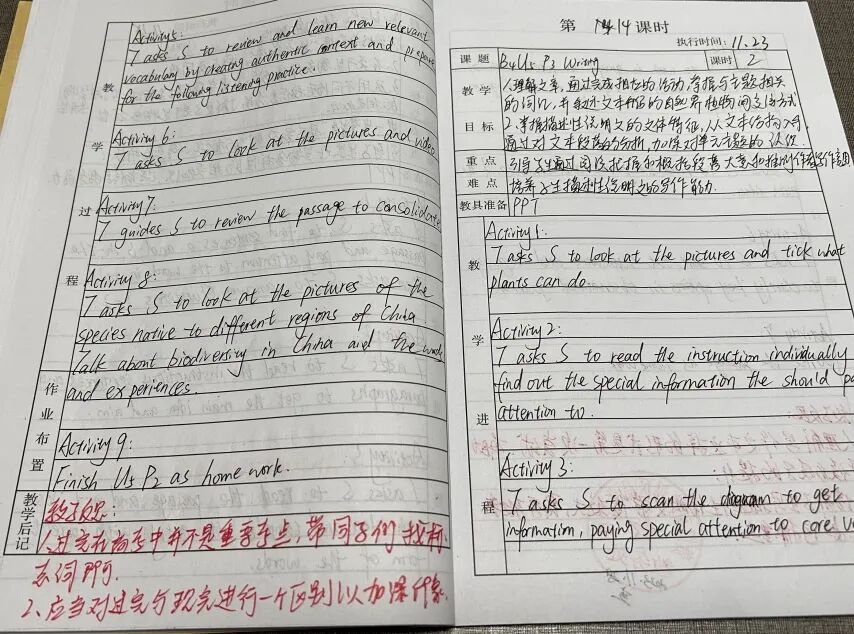 Activity 5:
T asks S to review and learn new relevant
vocabulary by creating authentic context and prepare
for the following listening practice.
教
学
Activity 6:
T asks S to look at the pictures and video
过
Activity 7:
T guides S to review the passage to consolidate
程
Activity 8:
T asks S to look at the pictures of the
species native to different regions of China
Talk about biodiversity in China and the
and experiences.
作业布置
Activity 9:
Finish U5 P2 as homework.
教学后记
教学反思:
1.过完在高考中并不是重要考点,带同学们找标
志词即可.
2.应当对过完与现完进行一个区别以加深印象.
第 14 课时
执行时间: 11.23
课题
B4U5 P3 Writing
课时 2
教学
目标
1.理解文章,通过完成相应的活动,掌握与主题相关
的词汇,并
2.掌握描述性说明文的文体特征,从文本结构入手,
通过对文本段落的分析,加深对单元主题的认识
重点
引导学生通过阅读把握和概括段落大意和
难点
培养学生描述性说明文的写作能力.
教具准备
PPT
教
Activity 1:
T asks S to look at the pictures and tick what
plants can do.
学
Activity 2:
T asks S to read the instruction individually
find out the special information the should pa
attention to.
进
Activity 3:
程
T asks S to scan the diagram to get
information, paying special attention to core